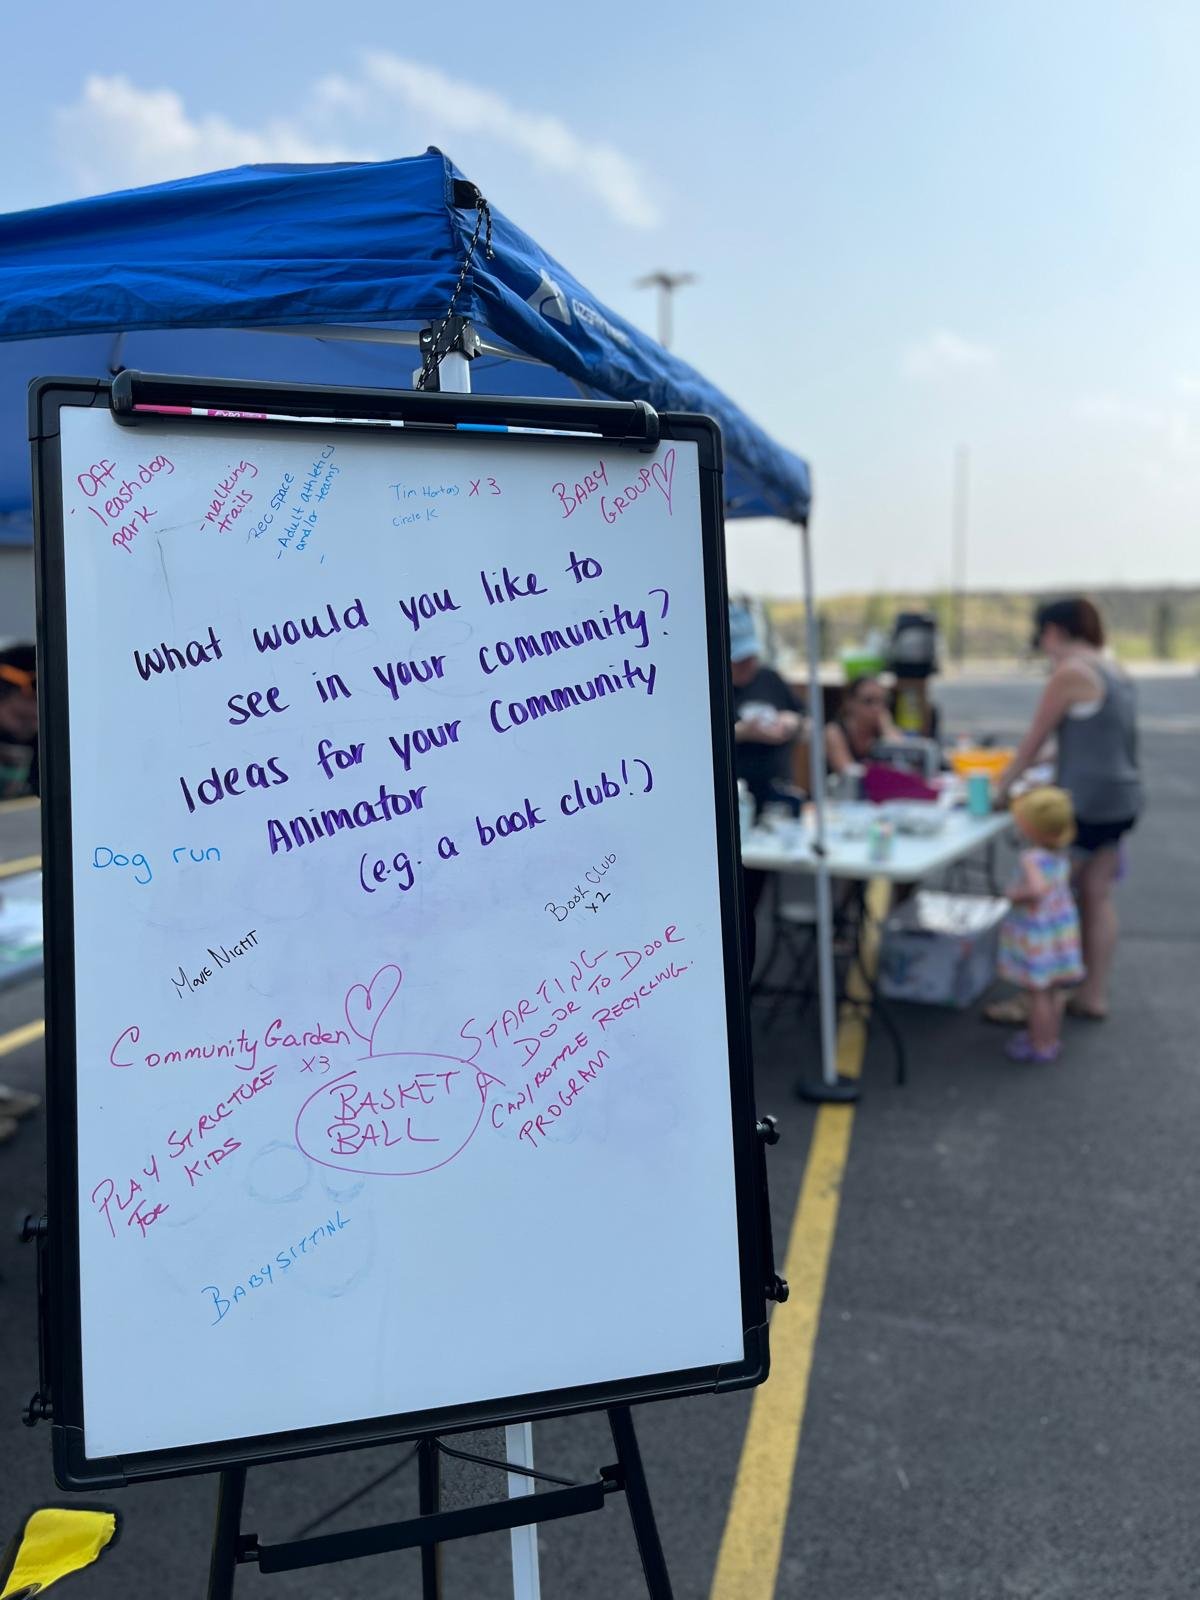 - Off
leash dog
park
- walking
trails
Rec space
- Adult athletics
and/or teams
-
Tim Hortons X 3
Circle K
BABY
GROUP
What would you like to
see in your community?
Ideas for your Community
Animator
(e.g. a book club!)
Dog run
Book Club
x2
MOVIE NIGHT
Community Garden
x3
STARTING
A DOOR TO DOOR
CAN/BOTTLE RECYCLING.
PROGRAM
BASKET
BALL
PLAY STRUCTURE
FOR KIDS
BABYSITTING